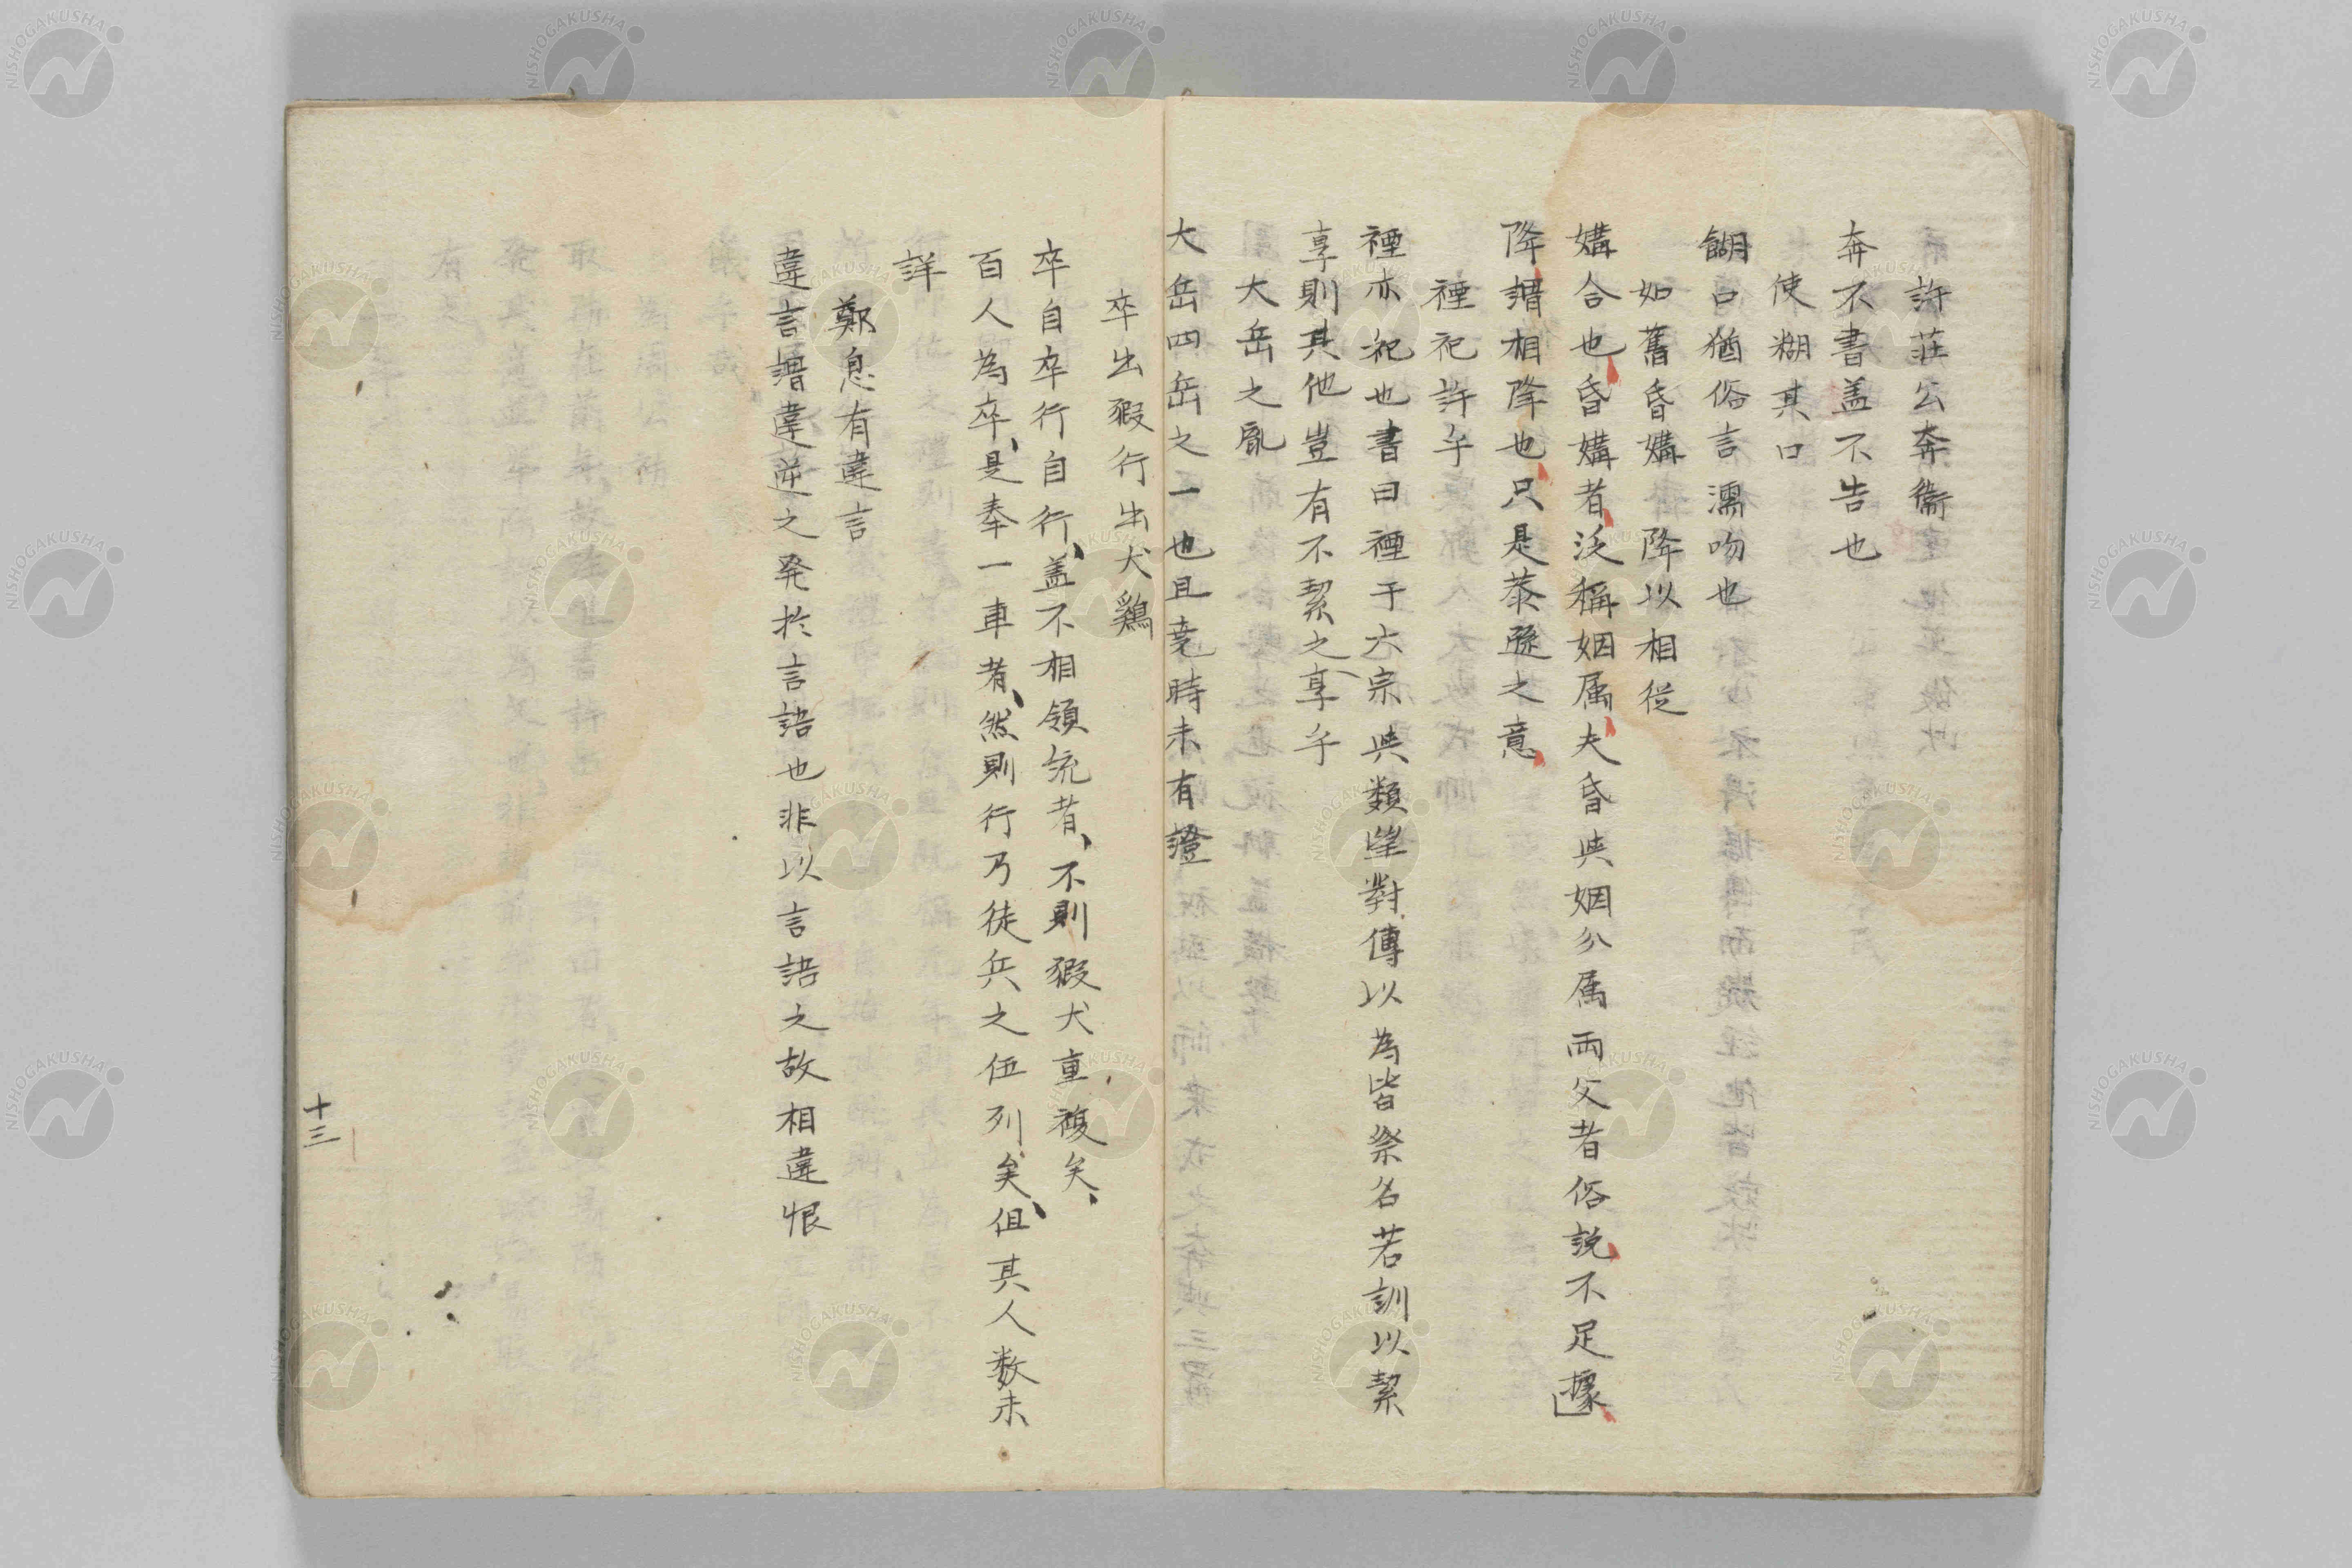 許莊公奔衞
奔不書盖不告也
使糊其口
餬口猶俗言濡吻也
如舊昏媾　降以相従
媾合也昏媾者泛稱姻属夫昏與姻分属両父者俗説不足據
降譜相降也只是恭遜之意
禋祀許乎
禋亦祀也書曰禋于六宗與類望對傳以為皆祭名若訓以絜
享則其他豈有不絜之享乎
大岳之胤
大岳四岳之一也且堯時未有證
卒出豭行出犬鷄
卒自卒行自行、盖不相領統者、不則豭犬重複矣、
百人為卒、是奉一車者、然則行乃徒兵之伍列矣、伹其人数未
詳
鄭息有違言
違言譜違逆之発於言語也非以言語之故相違恨
十三
NISHOGAKUSHA